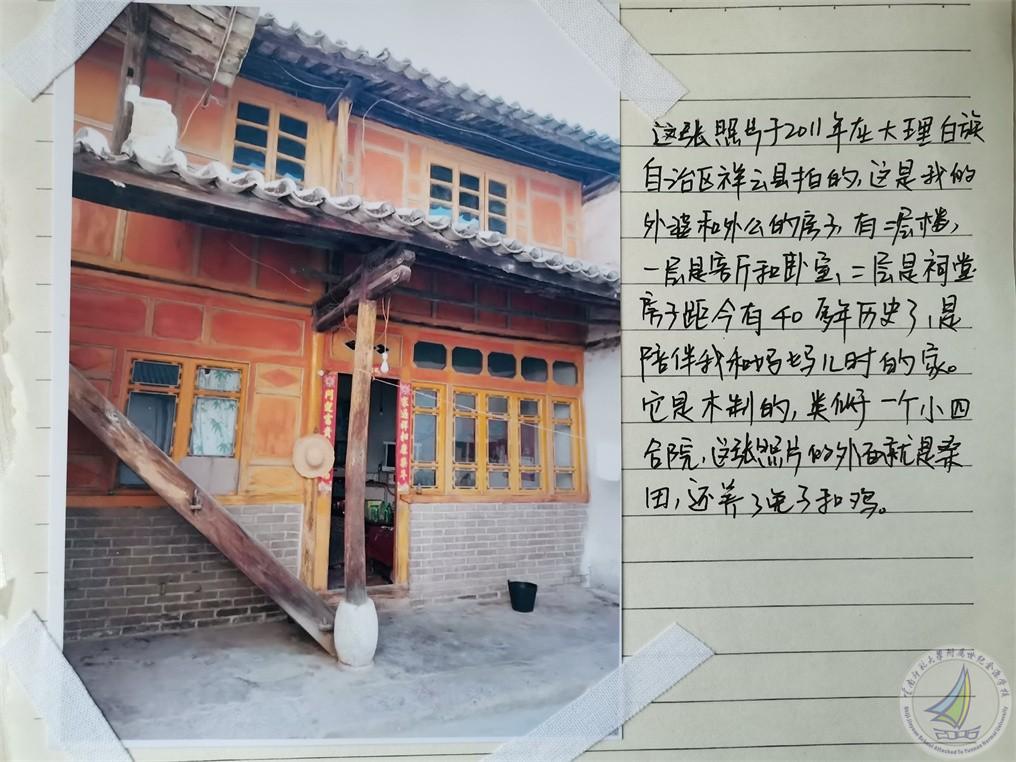 这张照片于2011年在大理白族
自治区祥云县拍的,这是我的
外婆和外公的房子,有二层楼,
一层是客厅和卧室,二层是祠堂
房子距今有40多年历史了,是
陪伴我和妈妈儿时的家。
它是木制的,类似于一个小四
合院,这张照片的外面就是菜
田,还养了兔子和鸡。
云南师范大学附属世纪金源学校
Shiji Jinyuan School Attached To Yunnan Normal University